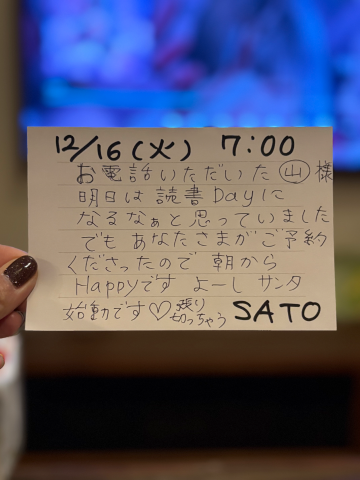 12/16(火) 7:00
お電話いただいた㊤山様
明日は読書Dayに
なるなぁと思っていました
でもあなたさまがご予約
くださったので朝から
Happyです よーし サンタ
始動です♡張り切っちゃう SATO